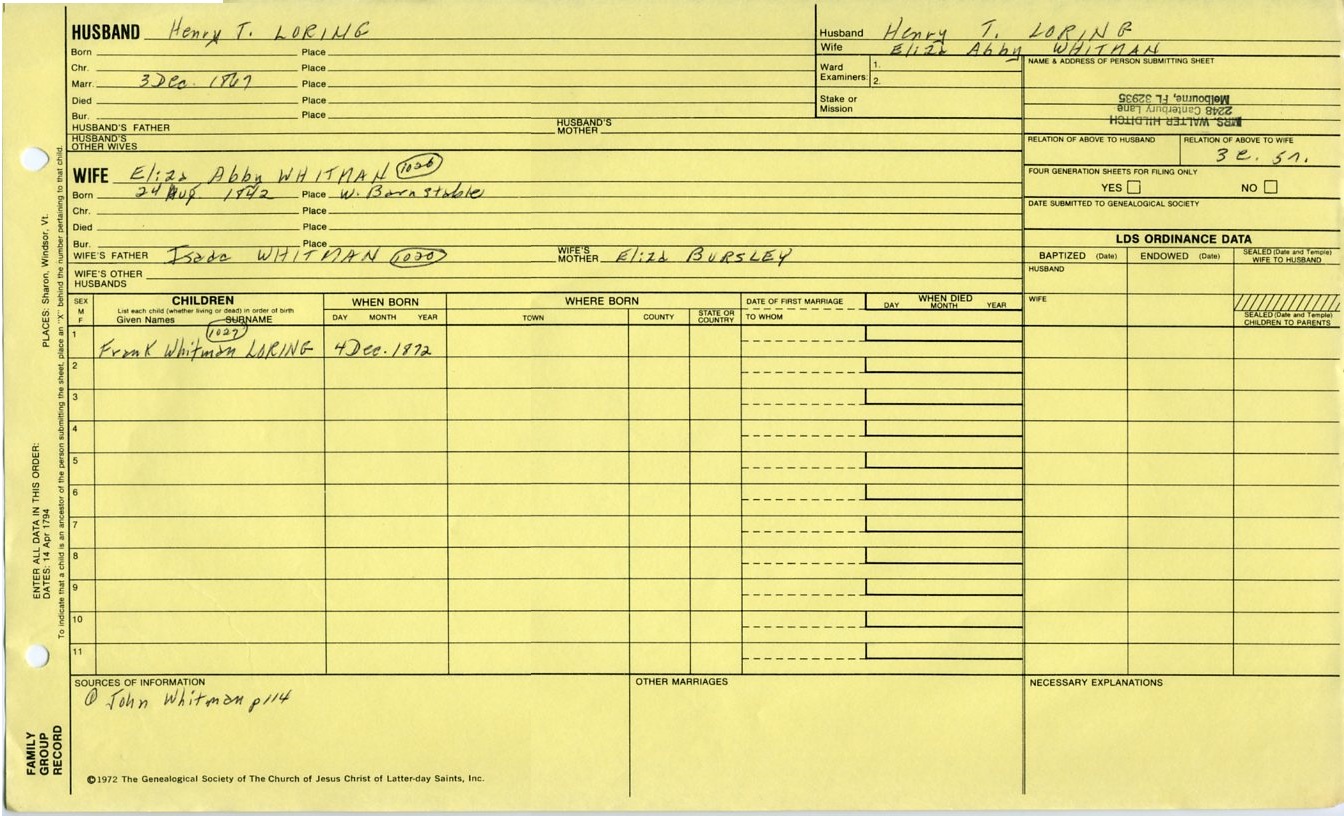 HUSBAND Henry T. LORING
Born Place
Chr. Place
Marr. 3 Dec. 1867 Place
Died Place
Bur. Place
HUSBAND'S FATHER HUSBAND'S MOTHER
HUSBAND'S OTHER WIVES
Husband Henry T. LORING
Wife Eliza Abby WHITMAN
Ward Examiners: 1.
2.
Stake or Mission
NAME & ADDRESS OF PERSON SUBMITTING SHEET
MRS. WALTER HILDITCH
2248 Canterbury Lane
Melbourne, FL 32935
RELATION OF ABOVE TO HUSBAND RELATION OF ABOVE TO WIFE
3 c. 5r.
FOUR GENERATION SHEETS FOR FILING ONLY
YES NO
DATE SUBMITTED TO GENEALOGICAL SOCIETY
WIFE Eliza Abby WHITMAN 1026
Born 24 Aug. 1842 Place W. Barnstable
Chr. Place
Died Place
Bur. Place
WIFE'S FATHER Isaac WHITMAN 1020 WIFE'S MOTHER Eliza BURSLEY
WIFE'S OTHER HUSBANDS
LDS ORDINANCE DATA
BAPTIZED (Date) ENDOWED (Date) SEALED (Date and Temple) WIFE TO HUSBAND
HUSBAND
WIFE
SEALED (Date and Temple) CHILDREN TO PARENTS
SEX M F CHILDREN WHEN BORN WHERE BORN DATE OF FIRST MARRIAGE WHEN DIED
List each child (whether living or dead) in order of birth
Given Names SURNAME DAY MONTH YEAR TOWN COUNTY STATE OR COUNTRY TO WHOM DAY MONTH YEAR
1027
1 Frank Whitman LORING 4 Dec. 1872
2
3
4
5
6
7
8
9
10
11
SOURCES OF INFORMATION OTHER MARRIAGES NECESSARY EXPLANATIONS
John Whitman p114
©1972 The Genealogical Society of The Church of Jesus Christ of Latter-day Saints, Inc.
FAMILY GROUP RECORD
ENTER ALL DATA IN THIS ORDER:
DATES: 14 Apr 1794
PLACES: Sharon, Windsor, Vt.
To indicate that a child is an ancestor of the person submitting the sheet, place an "X" behind the number pertaining to that child.